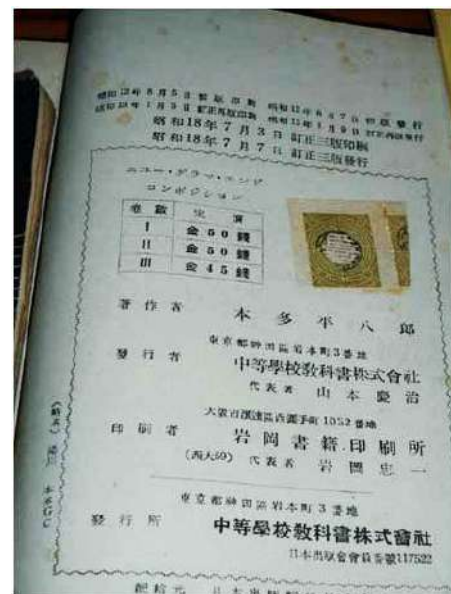 昭和18年7月3日 訂正三版印刷
昭和18年7月7日 訂正三版發行
ニユー・グラマ・エンド
コンポジション
卷數 定價
I 金50錢
II 金50錢
III 金45錢
著作者 本多平八郎
東京都神田區岩本町3番地
發行者 中等學校教科書株式會社
代表者 山本慶治
1052番地
印刷者 岩岡書籍印刷所
(西大59) 代表者 岩岡忠一
東京都神田區岩本町3番地
發行所 中等學校教科書株式會社
日本出版會會員番號117522
配給元